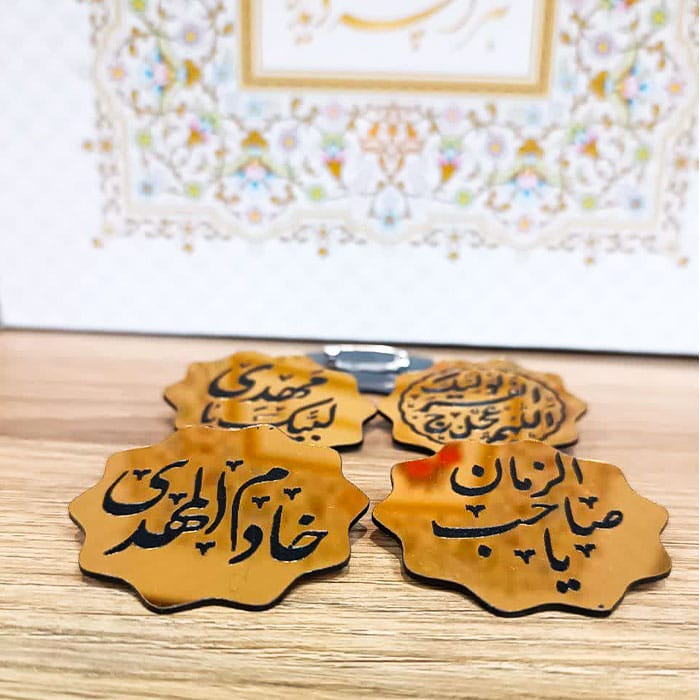 لبیک یا
مهدی
اللهم عجل
لولیک
الفرج
خادم المهدی
یا
صاحب
الزمان